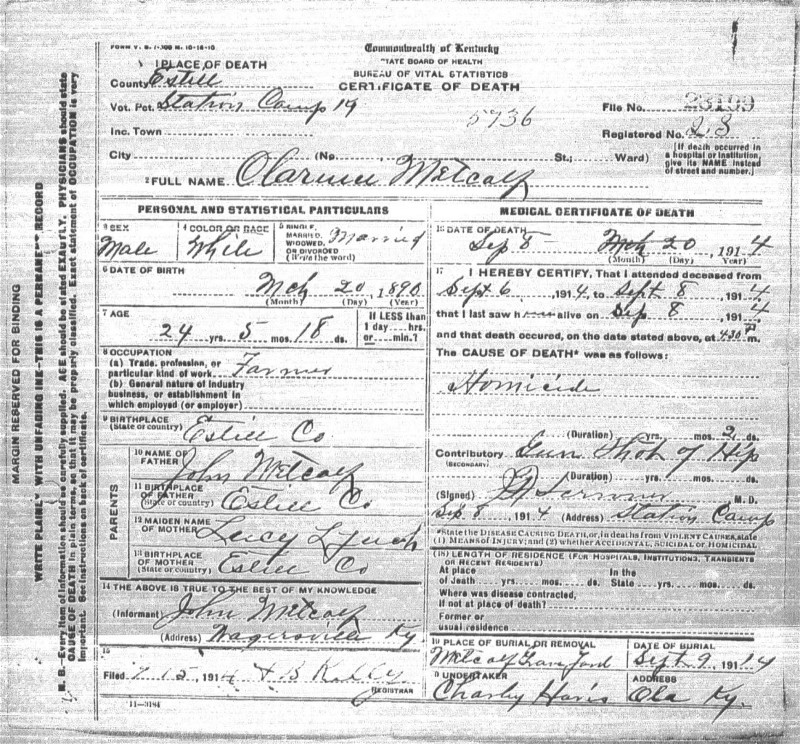 FORM V. S. 1-
Commonwealth of Kentucky
STATE BOARD OF HEALTH
BUREAU OF VITAL STATISTICS
CERTIFICATE OF DEATH
1 PLACE OF DEATH
County Estill
Vot. Pct. Station Camp 19
5736
File No. 23109
Inc. Town
Registered No. 28
City (No. St.; Ward)
[If death occurred in a hospital or institution, give its NAME instead of street and number.]
2 FULL NAME Clarence Metcalf
PERSONAL AND STATISTICAL PARTICULARS
3 SEX
Male
4 COLOR OR RACE
White
5 SINGLE, MARRIED, WIDOWED, OR DIVORCED
(Write the word)
Married
6 DATE OF BIRTH
Mch 20 1890
(Month) (Day) (Year)
7 AGE
24 yrs. 5 mos. 18 ds.
If LESS than
1 day ... hrs.
or ... min.?
8 OCCUPATION
(a) Trade, profession, or
particular kind of work Farmer
(b) General nature of industry
business, or establishment in
which employed (or employer)
9 BIRTHPLACE
(State or country)
Estill Co
PARENTS
10 NAME OF
FATHER
John Metcalf
11 BIRTHPLACE
OF FATHER
(State or country)
Estill Co
12 MAIDEN NAME
OF MOTHER
Lucy Lynch
13 BIRTHPLACE
OF MOTHER
(State or country)
Estill Co
14 THE ABOVE IS TRUE TO THE BEST OF MY KNOWLEDGE
(Informant) John Metcalf
(Address) Wagersville Ky
15
Filed 1914
REGISTRAR
11-3184
MEDICAL CERTIFICATE OF DEATH
16 DATE OF DEATH
Sep 8 Mch 20, 1914
(Month) (Day) (Year)
17 I HEREBY CERTIFY, That I attended deceased from
Sept 6, 1914, to Sept 8, 1914
that I last saw h alive on Sep 8, 1914
and that death occured, on the date stated above, at 430 P m.
The CAUSE OF DEATH* was as follows:
Homicide
(Duration) yrs. mos. 2 ds.
Contributory Gun Shot of Hip
(SECONDARY)
(Duration) yrs. mos. ds.
(Signed) M. D.
Sep 8, 1914 (Address) Station Camp
*State the DISEASE CAUSING DEATH, or, in deaths from VIOLENT CAUSES, state
(1) MEANS OF INJURY; and (2) whether ACCIDENTAL, SUICIDAL or HOMICIDAL
18 LENGTH OF RESIDENCE (FOR HOSPITALS, INSTITUTIONS, TRANSIENTS
OR RECENT RESIDENTS)
At place In the
of death yrs. mos. ds. State yrs. mos. ds.
Where was disease contracted,
If not at place of death?
Former or
usual residence
19 PLACE OF BURIAL OR REMOVAL
Metcalf Grave Yard
DATE OF BURIAL
Sept 9, 1914
20 UNDERTAKER
Charly Haris
ADDRESS
Ola Ky.
MARGIN RESERVED FOR BINDING
WRITE PLAINLY WITH UNFADING INK—THIS IS A PERMANENT RECORD
N. B.—Every item of information should be carefully supplied. AGE should be stated EXACTLY. PHYSICIANS should state
CAUSE OF DEATH in plain terms, so that it may be properly classified. Exact statement of OCCUPATION is very
important. See instructions on back of certificate.